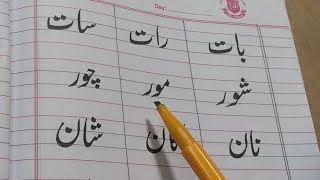 Day:
بات رات سات
شور مور چور
نان شان